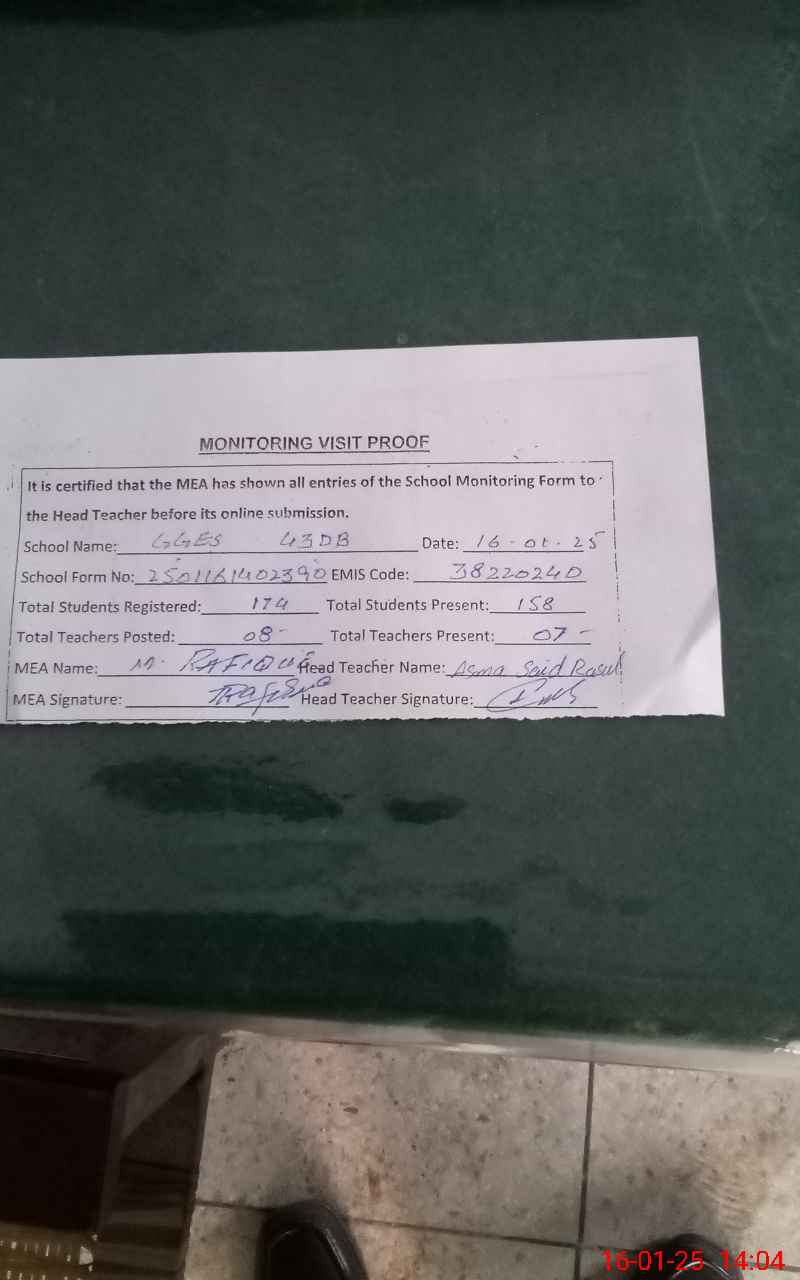 MONITORING VISIT PROOF
It is certified that the MEA has shown all entries of the School Monitoring Form to
the Head Teacher before its online submission.
School Name: GGES 43DB Date: 16-01-25
School Form No: 2501161402390 EMIS Code: 38220240
Total Students Registered: 174 Total Students Present: 158
Total Teachers Posted: 08- Total Teachers Present: 07-
MEA Name: M. RAFIQUE Head Teacher Name: Asma Said Rasul
MEA Signature: Head Teacher Signature:
16-01-25 14:04